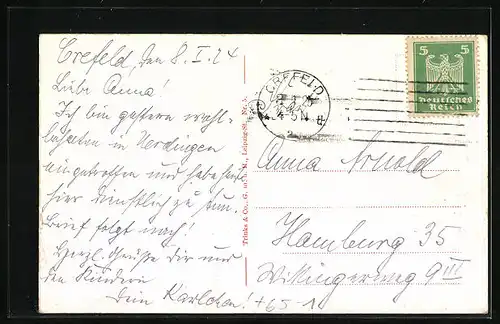 Crefeld, den 8. I. 24
Liebe Anna!
Ich bin gestern wohl-
behalten in Uerdingen
eingetroffen und habe heut
hier dienstlich zu tun.
Brief folgt nach!
Herzl. Grüße Dir und
den Kindern
Dein Karlchen!
+65-1
Trinks & Co., G. m. b. H., Leipzig
CREFELD
5 5
Deutsches
Reich
Anna Arnold
Hamburg 35
Wikingerweg 9 III